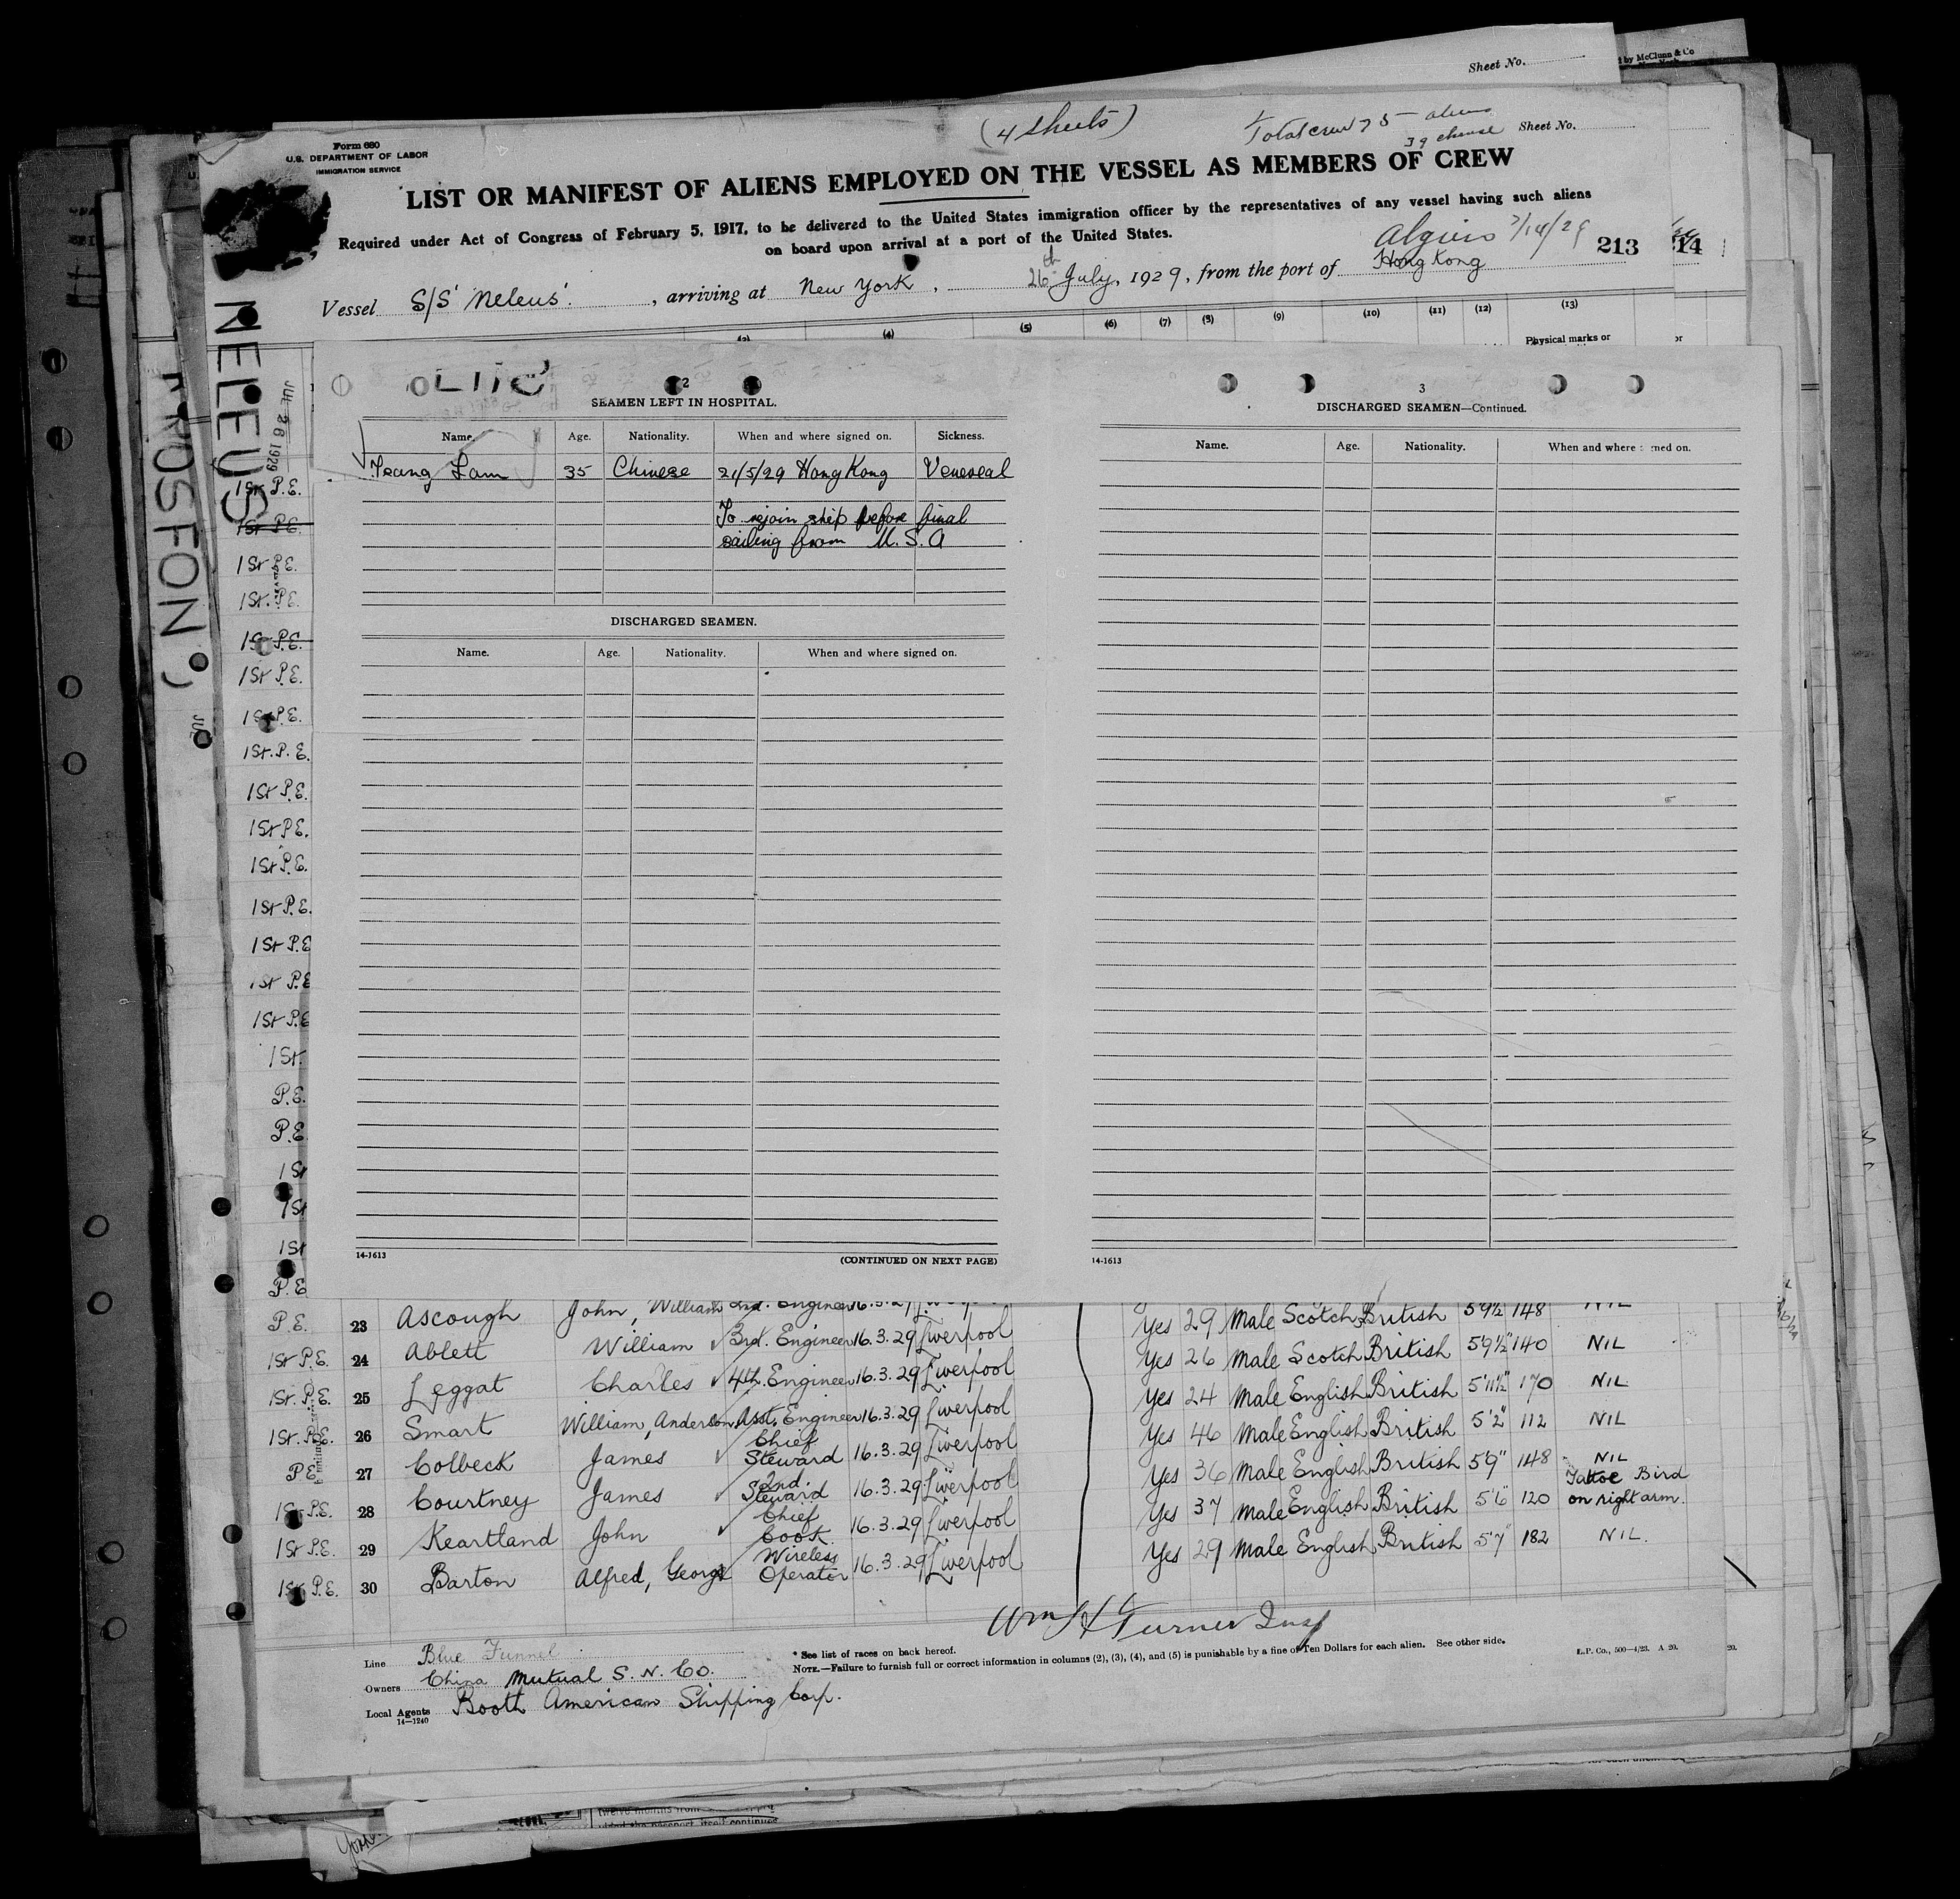 Sheet No.
by McClunn & Co
(4 sheets)
Total crew 75 - aliens
39 chinese
Sheet No.
Form 680
U.S. DEPARTMENT OF LABOR
IMMIGRATION SERVICE
LIST OR MANIFEST OF ALIENS EMPLOYED ON THE VESSEL AS MEMBERS OF CREW
Required under Act of Congress of February 5, 1917, to be delivered to the United States immigration officer by the representatives of any vessel having such aliens
on board upon arrival at a port of the United States.
Algiers 7/14/29
213
14
Vessel S/S 'Neleus', arriving at New York, 26th July, 1929, from the port of Hong Kong
(3) (4) (5) (6) (7) (8) (9) (10) (11) (12) (13)
Physical marks or
NELEUS
JUL 26 1929
ROSFON)
2
SEAMEN LEFT IN HOSPITAL.
Name. Age. Nationality. When and where signed on. Sickness.
Tsang Lam 35 Chinese 21/5/29 Hong Kong Venereal
To rejoin ship before final
sailing from U.S.A
DISCHARGED SEAMEN.
Name. Age. Nationality. When and where signed on.
14-1613
(CONTINUED ON NEXT PAGE)
3
DISCHARGED SEAMEN—Continued.
Name. Age. Nationality. When and where signed on.
14-1613
1St P.E.
1St P.E.
1St P.E.
1St. P.E.
1St P.E.
1St P.E.
1St P.E.
1St. P.E.
1St P.E.
1St P.E.
1St P.E.
1St P.E.
1St P.E
1St P.E
1St P.E
1St.
P.E.
P.E
1St
1St
1St
P.E
P.E. 23 Ascough John, William 2nd. Engineer 16.3.29 Liverpool Yes 29 Male Scotch British 5'9½ 148 NIL
1St P.E. 24 Ablett William 3rd. Engineer 16.3.29 Liverpool Yes 26 Male Scotch British 5'9½" 140 NIL
1St. P.E. 25 Leggat Charles 4th. Engineer 16.3.29 Liverpool Yes 24 Male English British 5'11½" 170 NIL
1St. P.E. 26 Smart William, Anderson Asst. Engineer 16.3.29 Liverpool Yes 46 Male English British 5'2" 112 NIL
P.E. 27 Colbeck James Chief Steward 16.3.29 Liverpool Yes 36 Male English British 5'9" 148 NIL
1St P.E. 28 Courtney James 2nd. Steward 16.3.29 Liverpool Yes 37 Male English British 5'6" 120 Tattoe Bird on right arm.
1St P.E. 29 Keartland John Chief Cook 16.3.29 Liverpool Yes 29 Male English British 5'7" 182 NIL.
1St P.E. 30 Barton Alfred, George Wireless Operator 16.3.29 Liverpool
Wm H Turner Insp
Line Blue Funnel
Owners China Mutual S. N. Co.
Local Agents Booth American Shipping Corp.
14—1240
* See list of races on back hereof.
NOTE.—Failure to furnish full or correct information in columns (2), (3), (4), and (5) is punishable by a fine of Ten Dollars for each alien. See other side.
L.P. Co., 500—4/23. A 20.
20.
York